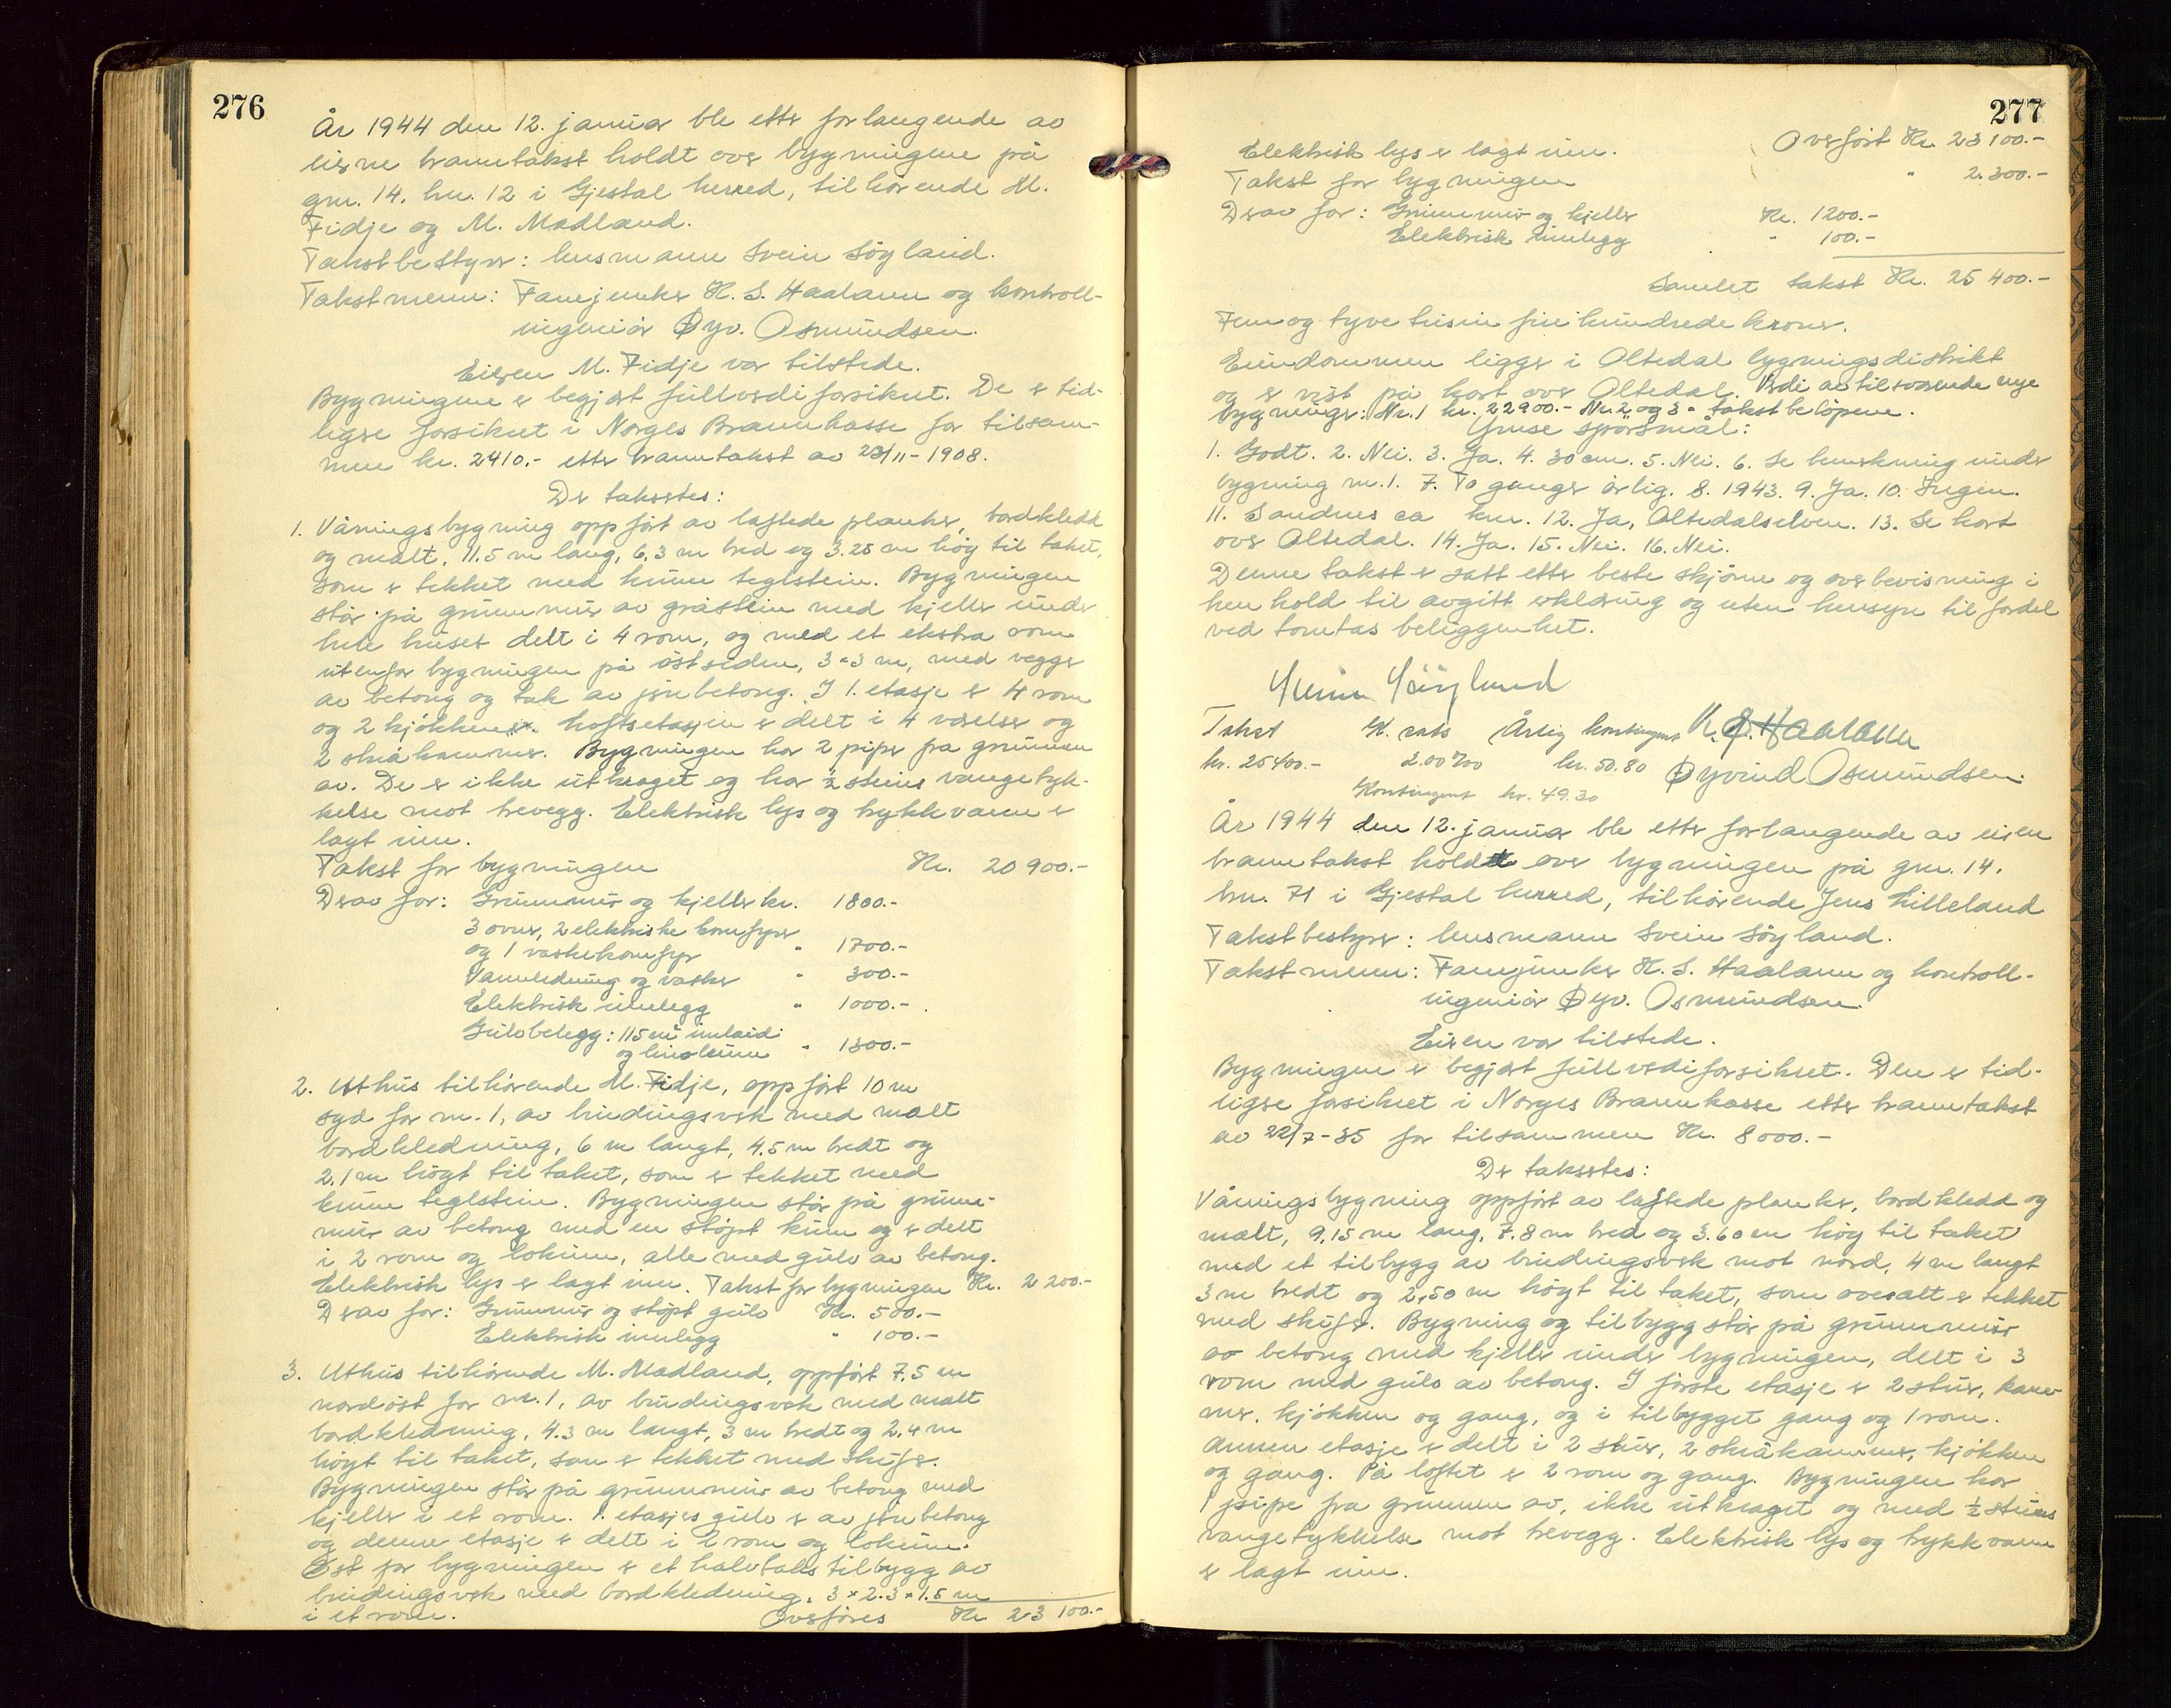 276
År 1944 den 12. januar ble etter forlangende av
eierne branntakst holdt over bygningene på
gnr. 14. bnr. 12 i Gjestal herred, tilhörende M.
Fidje og M. Madland.
Takstbestyrer: lensmann Svein Söyland.
Takstmenn: Fanejunker K. S. Haaland og kontroll-
ingeniör Øyv. Osmundsen.
Eieren M. Fidje var tilstede.
Bygningene er begjært fullverdiforsikret. De er tid-
ligere forsikret i Norges Brannkasse for tilsam-
men kr. 2410.- etter branntakst av 23/11-1908.
Der takseres:
1. Våningsbygning oppfört av laftede planker, bordkledd
og malt, 11.5 m lang, 6,3 m bred og 3.25 m höy til taket,
som er tekket med krum teglstein. Bygningen
står på grunnmur av gråstein med kjeller under
hele huset delt i 4 rom, og med et ekstra rom
utenfor bygningen på östsiden, 3×3 m, med vegger
av betong og tak av jernbetong. I 1. etasje er 4 rom
og 2 kjökkener. Loftsetasjen er delt i 4 værelser og
2 skråkammer. Bygningen har 2 piper fra grunnen
av. De er ikke utkraget og har ½ steins vangetyk-
kelse mot trevegg. Elektrisk lys og trykkvann er
lagt inn.
Takst for bygningen Kr. 20 900.-
Derav for: Grunnmur og kjeller kr. 1800.-
3 ovner, 2 elektriske komfyrer
og 1 vaskekomfyr " 1700.-
Vannledning og vasker " 300.-
Elektrisk innlegg " 1000.-
Gulvbelegg: 115 m² inlaid
og linoleum " 1300.-
2. Uthus tilhörende M. Fidje, oppfört 10 m
syd for nr. 1, av bindingsverk med malt
bordkledning, 6 m langt, 4.5 m bredt og
2.1 m högt til taket, som er tekket med
krum teglstein. Bygningen står på grunn-
mur av betong med en støpt kum og er delt
i 2 rom og lokum, alle med gulv av betong.
Elektrisk lys er lagt inn. Takst for bygningen Kr. 2 200.-
Derav for: Grunnmur og støpt gulv Kr. 500.-
Elektrisk innlegg " 100.-
3. Uthus tilhörende M. Madland, oppfört 7.5 m
nordöst for nr. 1, av bindingsverk med malt
bordkledning, 4.3 m langt, 3 m bredt og 2.4 m
höyt til taket, som er tekket med skifer.
Bygningen står på grunnmur av betong med
kjeller i et rom. 1. etasjes gulv er av jernbetong
og denne etasje er delt i 2 rom og lokum.
Öst for bygningen er et halvtaks tilbygg av
bindingsverk med bordkledning, 3 × 2.3 × 1.5 m
i et rom. Overföres Kr. 23 100.-
277
Overfört Kr. 23 100.-
Elektrisk lys er lagt inn.
Takst for bygningen " 2.300.-
Derav for: Grunnmur og kjeller Kr. 1200.-
Elektrisk innlegg " 100.-
Samlet takst Kr. 25 400.-
Fem og tyve tusin fire hundrede kroner.
Eiendommen ligger i Oltedal bygningsdistrikt
og er vist på kart over Oltedal. Verdi av tilsvarende nye
bygninger: Nr. 1 kr. 22900.- Nr. 2 og 3 = takstbelöpene.
Ymse spörsmål:
1. Godt. 2. Nei. 3. Ja. 4. 30 cm. 5. Nei. 6. Se bemerkning under
bygning nr. 1. 7. To ganger årlig. 8. 1943. 9. Ja. 10. Ingen.
11. Sandnes ca km. 12. Ja, Oltedalselven. 13. Se kart
over Oltedal. 14. Ja. 15. Nei. 16. Nei.
Denne takst er satt etter beste skjönn og overbevisning i
henhold til avgitt erklæring og uten hensyn til fordel
ved tomtas beliggenhet.
Svein Söyland
Takst K. sats Årlig kontingent K. S. Haaland
kr. 25400.- 2.00 ‰ kr. 50.80 Øyvind Osmundsen.
Kontingent kr. 49.30
År 1944 den 12. januar ble etter forlangende av eieren
branntakst holdt over bygningen på gnr. 14.
bnr. 71 i Gjestal herred, tilhörende Jens Lilleland
Takstbestyrer: lensmann Svein Söyland.
Takstmenn: Fanejunker K. S. Haaland og kontroll-
ingeniör Øyv. Osmundsen.
Eieren var tilstede.
Bygningen er begjært fullverdiforsikret. Den er tid-
ligere forsikret i Norges Brannkasse etter branntakst
av 22/7-35 for tilsammen Kr. 8000.-
Der takseres:
Våningsbygning oppfört av laftede planker, bordkledd og
malt, 9.15 m lang, 7.8 m bred og 3.60 m höy til taket
med et tilbygg av bindingsverk mot nord, 4 m langt
3 m bredt og 2,50 m höyt til taket, som overalt er tekket
med skifer. Bygning og tilbygg står på grunnmur
av betong med kjeller under bygningen, delt i 3
rom med gulv av betong. I förste etasje er 2 stuer, kam-
mer, kjökken og gang, og i tilbygget gang og 1 rom.
Annen etasje er delt i 2 stuer, 2 skråkammer, kjökken
og gang. På loftet er 2 rom og gang. Bygningen har
1 pipe fra grunnen av, ikke utkraget og med ½ steins
vangetykkelse mot trevegg. Elektrisk lys og trykkvann
er lagt inn.